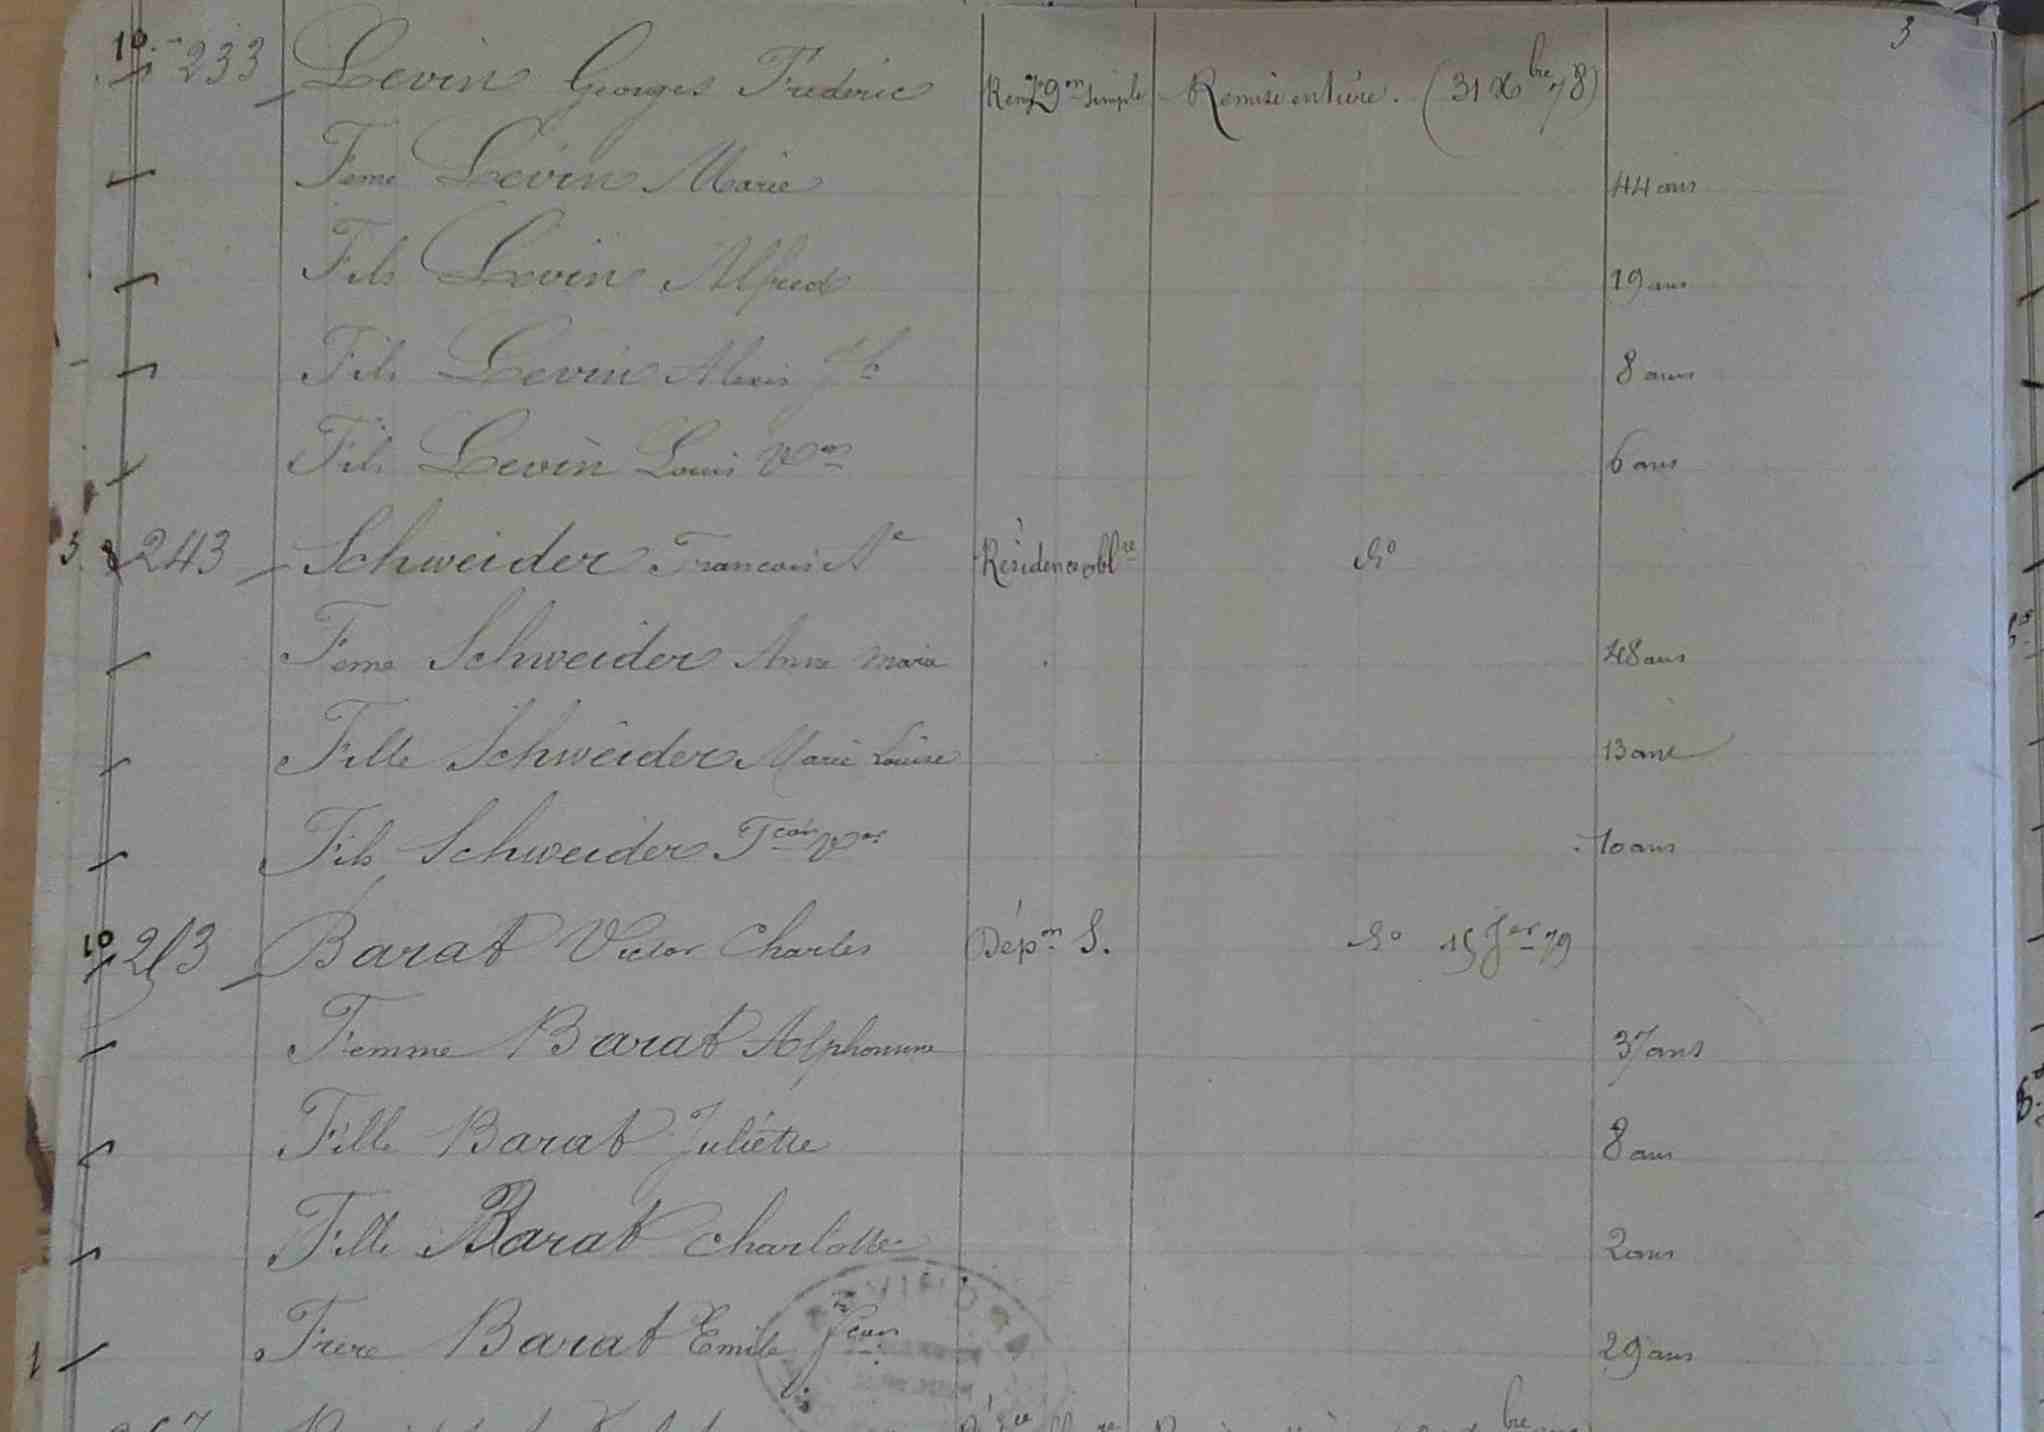 3
10 233 Levin Georges Frédéric simple Remise entière. (31 Xbre 78)
Feme Levin Marie 44 ans
Fils Levin Alfred 19 ans
Fils Levin Alexis Jh 8 ans
Fils Levin Louis Von 6 ans
3. 243 Schweider Francois Ae Résidence oblre do
Feme Schweider Anne Marie 48 ans
Fille Schweider Marie Louise 13 ans
Fils Schweider Jean Vor 10 ans
10 253 Barat Victor Charles Dépon S. do 15 Jer 79
Femme Barat Alphonsine 37 ans
Fille Barat Juliétte 8 ans
Fille Barat Charlotte 2 ans
1 Frere Barat Emile Jean 29 ans